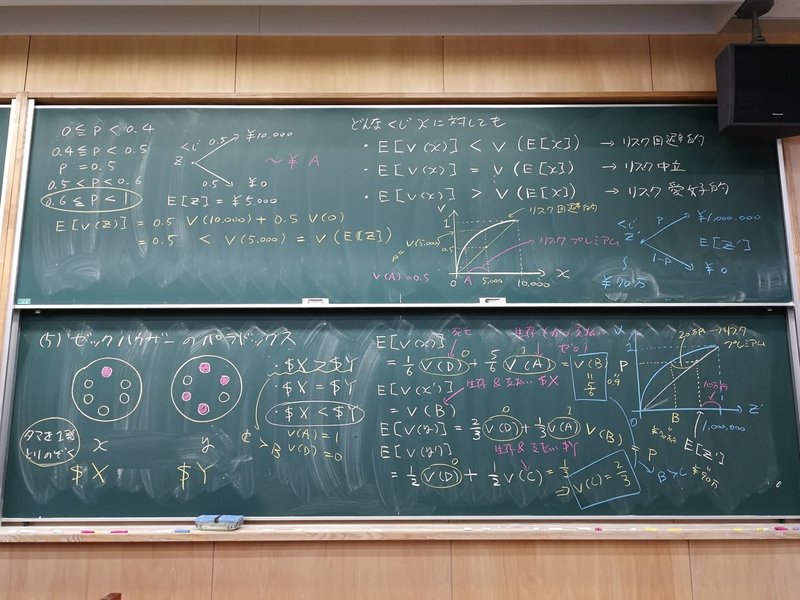 0 ≦ P < 0.4
0.4 ≦ P < 0.5
P = 0.5
0.5 < P < 0.6
0.6 ≦ P < 1
くじ 0.5 ¥10,000
Z
0.5 ¥0
E[Z] = ¥5,000
〜¥A
E[V(Z)] = 0.5 V(10,000) + 0.5 V(0)
= 0.5 < V(5,000) = V(E[Z])
どんなくじ X に対しても
・E[V(X)] < V(E[X]) → リスク回避的
・E[V(X)] = V(E[X]) → リスク中立
・E[V(X)] > V(E[X]) → リスク愛好的
V
リスク回避的
1
V(5,000)
P
0.5
リスクプレミアム
V(A) = 0.5
0 A 5,000 10,000 X
くじ P ¥1,000,000
Z' E[Z']
1-P ¥0
¥70万
(5) ゼックハウザーのパラドックス
タマを1発
とりのぞく
x y
$X $Y
・$X > $Y
・$X = $Y
・$X < $Y
V(A) = 1
C > B V(D) = 0
E[V(x)] 死亡
= 1/6 V(D) + 5/6 V(A) = V(B)
0 1
= 5/6
E[V(x')] 生存 & 支払い $X
= V(B)
E[V(y)] = 2/3 V(D) + 1/3 V(A)
0 1
E[V(y')] 生存 & 支払い $Y
= 1/2 V(D) + 1/2 V(C) = 1/3
0
⇒ V(C) = 2/3
V(B) = P
B > C
V
1
P
0.9
20万円 = リスク
プレミアム
10万円
0 B 1 Z'
¥70万 1,000,000
E[Z']
=
¥90万